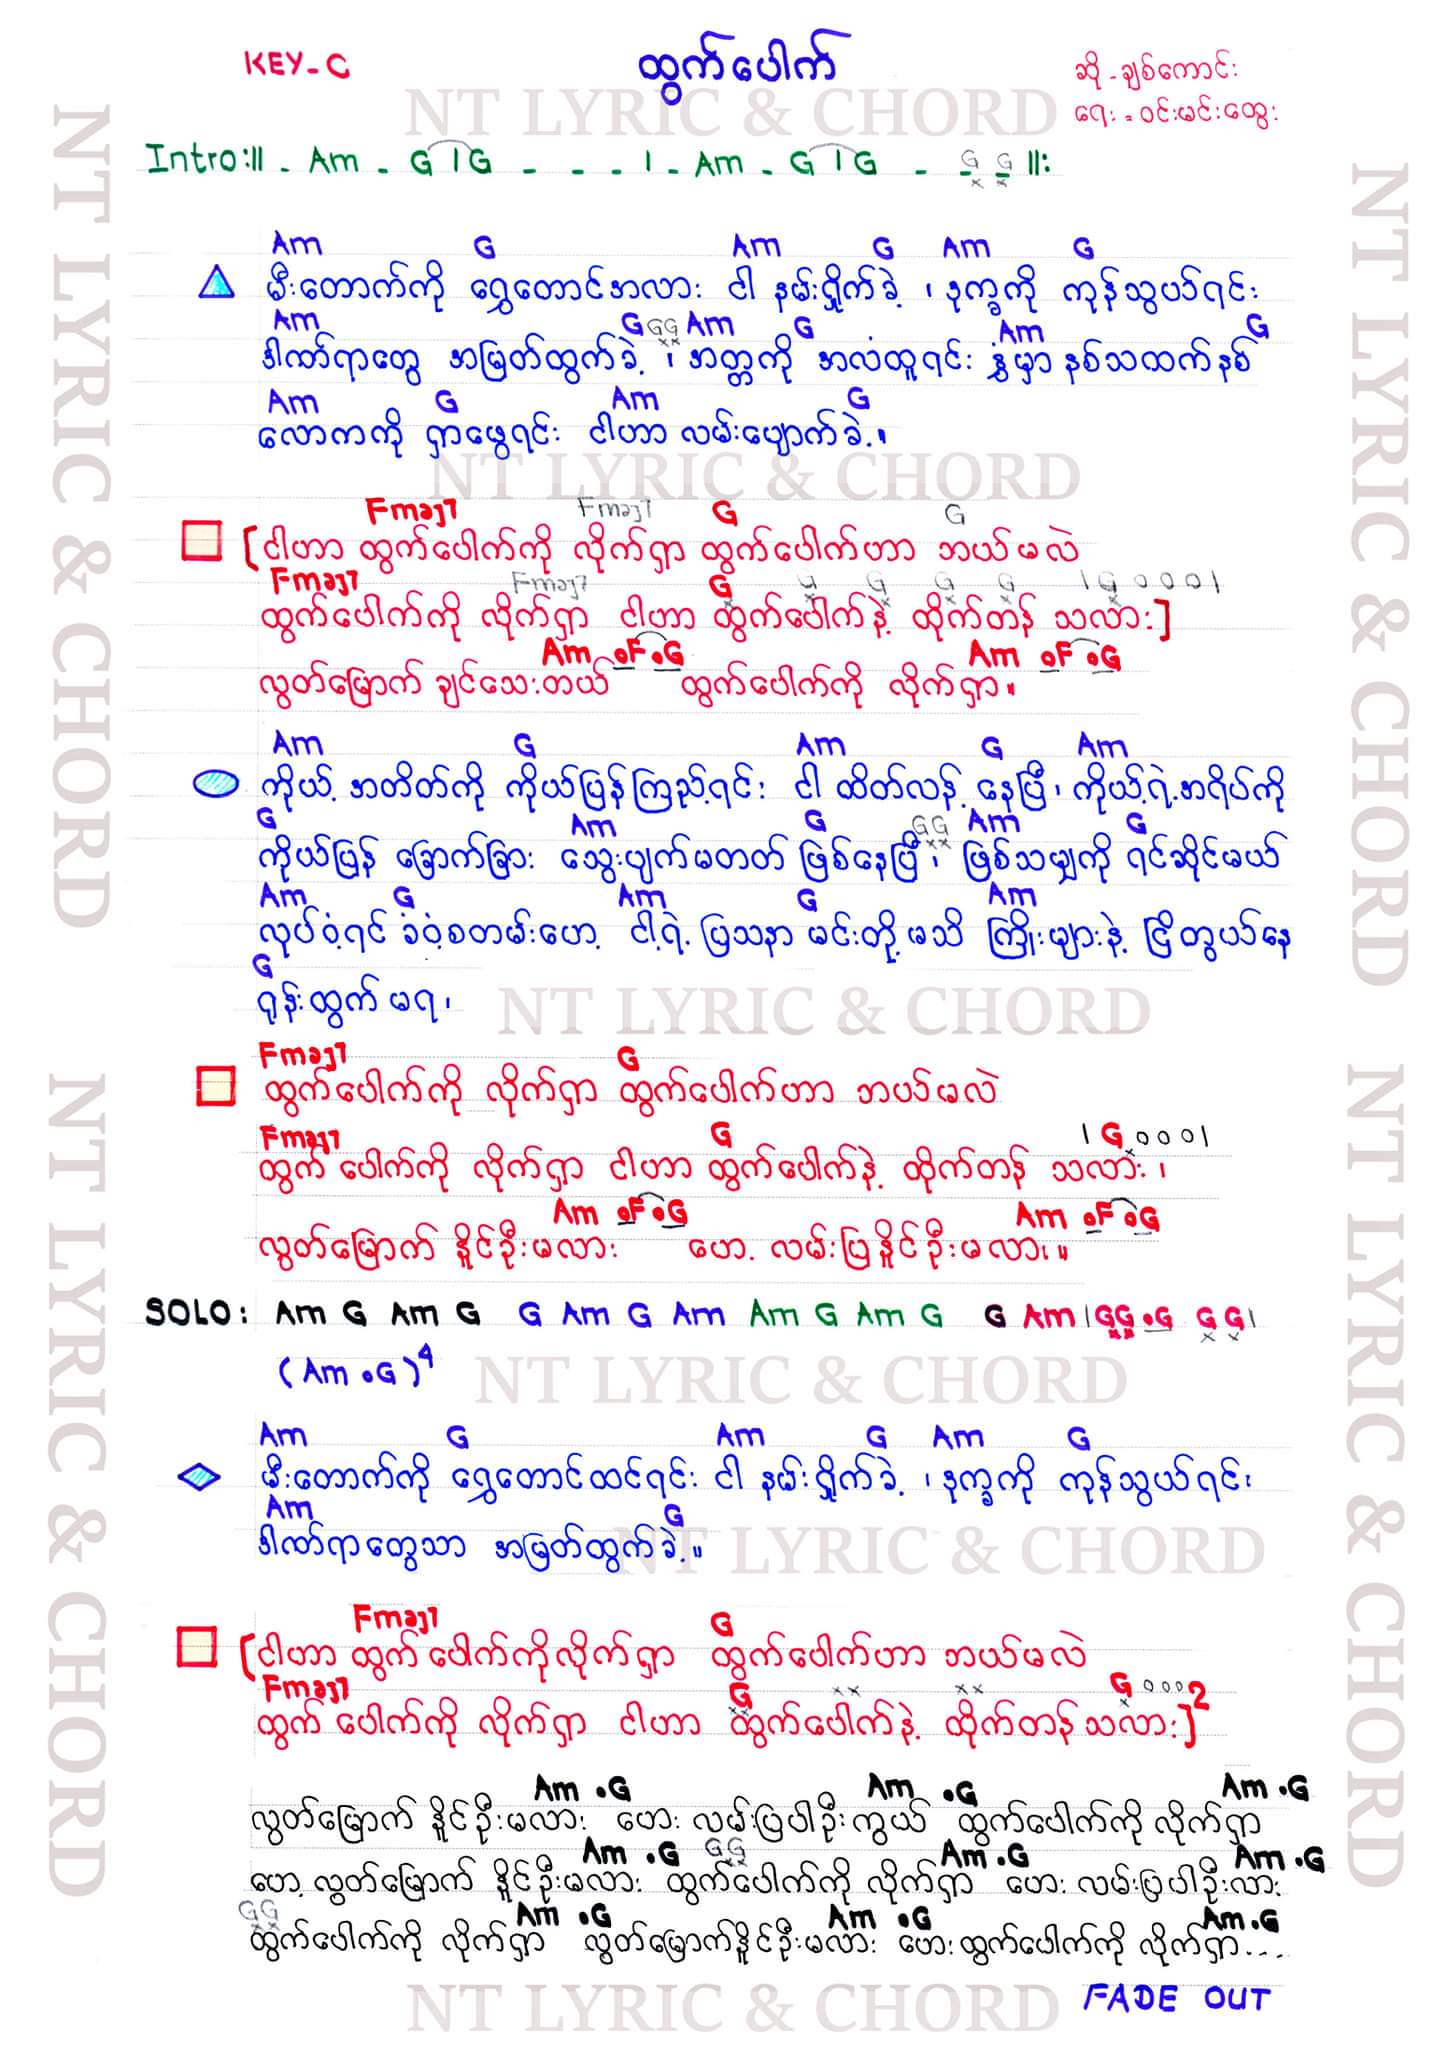 KEY-C ထွက်ပေါက် ဆို - ချစ်ကောင်း
ရေး - ဝင်းမင်းထွေး
NT LYRIC & CHORD
Intro:॥ - Am - G | G - - - | - Am - G | G - - G - G ॥:
Am G Am G Am G
မီးတောက်ကို ရွှေတောင်အလား ငါ နမ်းရှိုက်ခဲ့ ၊ ဒုက္ခကို ကုန်သွယ်ရင်း
Am G GG Am G Am G
ဒါဏ်ရာတွေ အမြတ်ထွက်ခဲ့ ၊ အတ္တကို အလံထူရင်း နွံမှာ နစ်သထက်နစ်
Am G Am G
လောကကို ရှာဖွေရင်း ငါဟာ လမ်းပျောက်ခဲ့ ။
NT LYRIC & CHORD
Fmaj7 Fmaj7 G G
[ငါဟာ ထွက်ပေါက်ကို လိုက်ရှာ ထွက်ပေါက်ဟာ ဘယ်မလဲ
Fmaj7 Fmaj7 G G G G G | G 0 0 0 |
ထွက်ပေါက်ကို လိုက်ရှာ ငါဟာ ထွက်ပေါက်နဲ့ ထိုက်တန် သလား]
Am •F •G Am •F •G
လွတ်မြောက် ချင်သေးတယ် ထွက်ပေါက်ကို လိုက်ရှာ ။
Am G Am G Am
ကိုယ့် အတိတ်ကို ကိုယ်ပြန်ကြည့်ရင်း ငါ ထိတ်လန့် နေပြီ ၊ ကိုယ့်ရဲ့အရိပ်ကို
G Am G GG Am G
ကိုယ်ပြန် ခြောက်ခြား သွေးပျက်မတတ် ဖြစ်နေပြီ ၊ ဖြစ်သမျှကို ရင်ဆိုင်မယ်
Am G Am G Am
လုပ်ဝံ့ရင် ခံဝံ့စတမ်းဟေ့ ငါ့ရဲ့ ပြသနာ မင်းတို့ မသိ ကြိုးများနဲ့ ငြိတွယ်နေ
G
ရုန်းထွက် မရ ၊
NT LYRIC & CHORD
Fmaj7 G
ထွက်ပေါက်ကို လိုက်ရှာ ထွက်ပေါက်ဟာ ဘယ်မလဲ
Fmaj7 G | G 0 0 0 |
ထွက်ပေါက်ကို လိုက်ရှာ ငါဟာ ထွက်ပေါက်နဲ့ ထိုက်တန် သလား ၊
Am •F •G Am •F •G
လွတ်မြောက် နိုင်ဦးမလား ဟေ့ လမ်းပြ နိုင်ဦးမလား ။
SOLO: Am G Am G G Am G Am Am G Am G G Am | GG •G GG |
(Am •G)4
NT LYRIC & CHORD
Am G Am G Am G
မီးတောက်ကို ရွှေတောင်ထင်ရင်း ငါ နမ်းရှိုက်ခဲ့ ၊ ဒုက္ခကို ကုန်သွယ်ရင်း
Am G
ဒါဏ်ရာတွေသာ အမြတ်ထွက်ခဲ့ ။
NT LYRIC & CHORD
Fmaj7 G
[ငါဟာ ထွက်ပေါက်ကိုလိုက်ရှာ ထွက်ပေါက်ဟာ ဘယ်မလဲ
Fmaj7 G xx xx G 0 0 0
ထွက်ပေါက်ကို လိုက်ရှာ ငါဟာ ထွက်ပေါက်နဲ့ ထိုက်တန်သလား]2
Am •G Am •G Am •G
လွတ်မြောက် နိုင်ဦးမလား ဟေး လမ်းပြပါဦး ကွယ် ထွက်ပေါက်ကို လိုက်ရှာ
Am •G GG Am •G Am •G
ဟေ့ လွတ်မြောက် နိုင်ဦးမလား ထွက်ပေါက်ကို လိုက်ရှာ ဟေး လမ်းပြပါဦးလား
GG Am •G Am •G Am •G
ထွက်ပေါက်ကို လိုက်ရှာ လွတ်မြောက်နိုင်ဦးမလား ဟေး ထွက်ပေါက်ကို လိုက်ရှာ....
NT LYRIC & CHORD FADE OUT
NT LYRIC & CHORD
NT LYRIC & CHORD
NT LYRIC & CHORD
NT LYRIC & CHORD